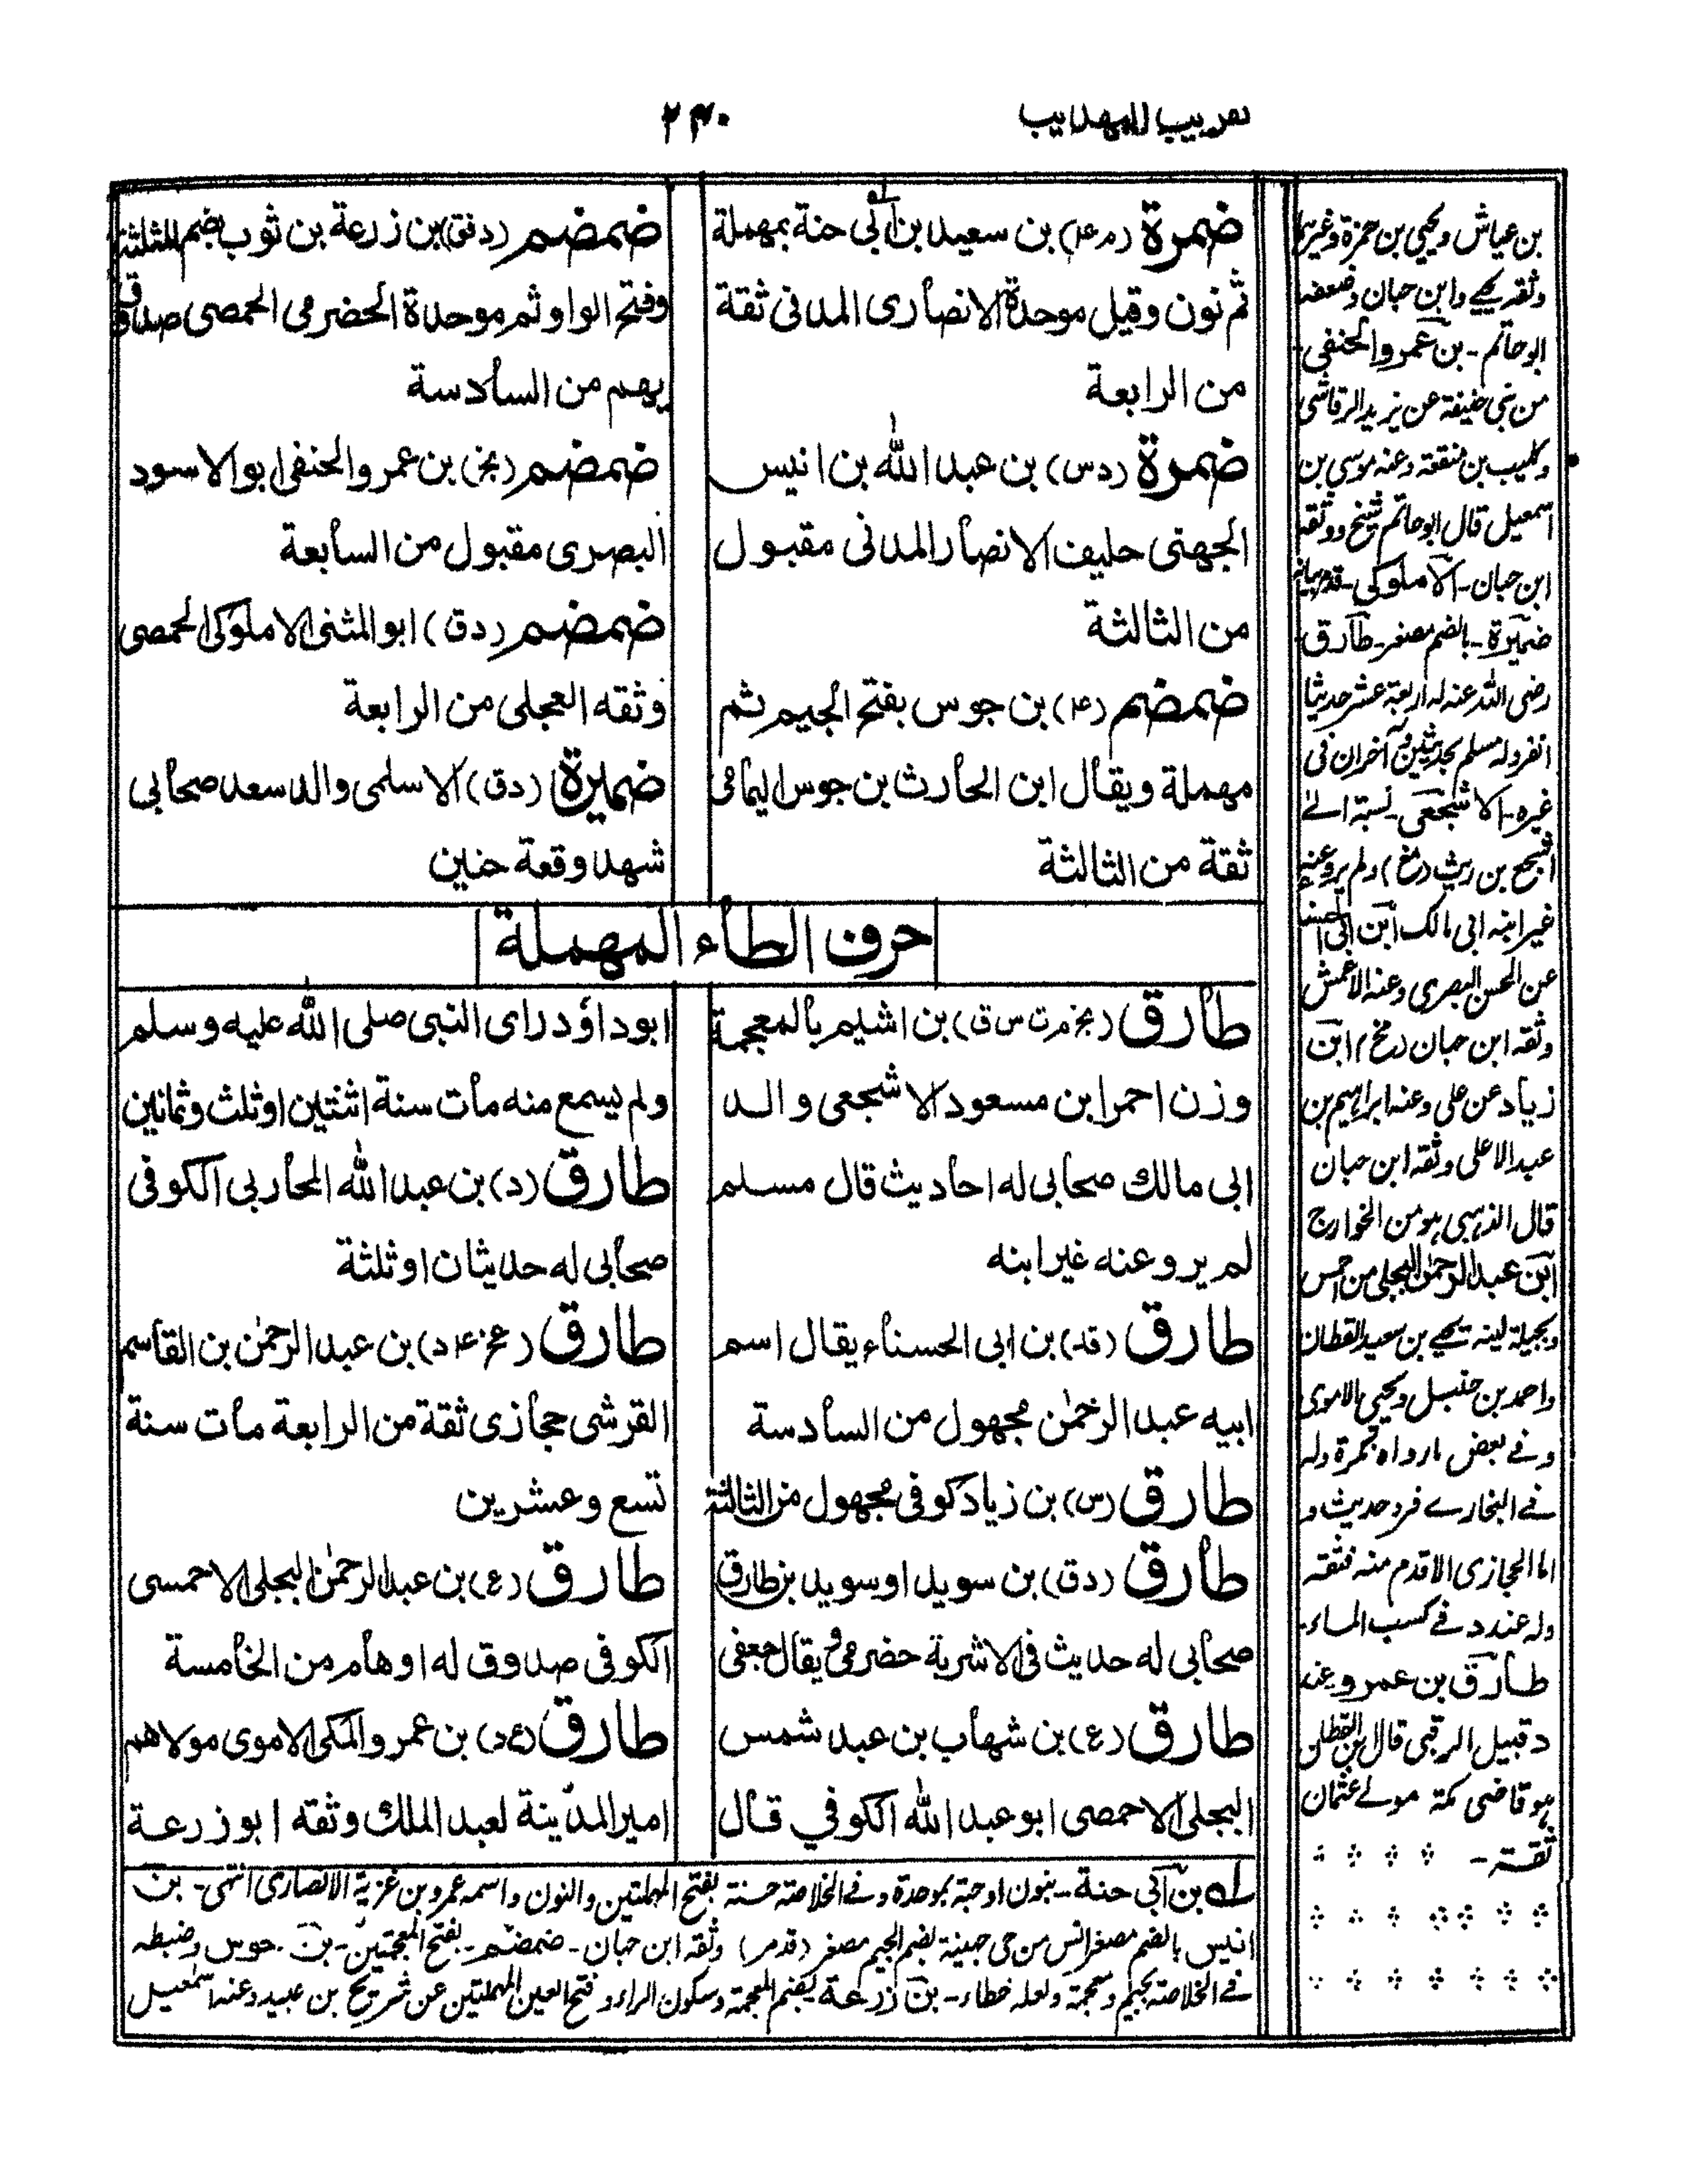 تقريب التهذيب
٢٣٠
ضمرة (م ٤) بن سعيد بن ابي حنة بمهملة
ثم نون وقيل موحدة الانصارى المدنى ثقة
من الرابعة
ضمرة (د س) بن عبد الله بن انيس
الجهنى حليف الانصار المدنى مقبول
من الثالثة
ضمضم (٤) بن جوس بفتح الجيم ثم
مهملة ويقال ابن الحارث بن جوس اليمامى
ثقة من الثالثة
ضمضم (د فق) بن زرعة بن ثوب بضم المثلثة
وفتح الواو ثم موحدة الحضرمى الحمصى صدوق
يهم من السادسة
ضمضم (بخ) بن عمرو الحنفى ابو الاسود
البصرى مقبول من السابعة
ضمضم (د ق) ابو المثنى الاملوكى الحمصى
وثقه العجلى من الرابعة
ضميرة (د ق) الاسلمى والد سعد صحابى
شهد وقعة حنين
حرف الطاء المهملة
طارق (بخ م ت س ق) بن اشيم بالمعجمة
وزن احمر ابن مسعود الاشجعى والد
ابى مالك صحابى له احاديث قال مسلم
لم يرو عنه غير ابنه
طارق (قد) بن ابى الحسناء يقال اسم
ابيه عبد الرحمٰن مجهول من السادسة
طارق (س) بن زياد كوفى مجهول من الثالثة
طارق (د ق) بن سويد او سويد بن طارق
صحابى له حديث فى الاشربة حضرمى ويقال جعفى
طارق (ع) بن شهاب بن عبد شمس
البجلى الاحمصى ابو عبد الله الكوفي قال
ابو داؤد راى النبى صلى الله عليه وسلم
ولم يسمع منه مات سنة اثنتين او ثلث وثمانين
طارق (د) بن عبد الله المحاربى الكوفى
صحابى له حديثان او ثلثة
طارق (عخ ٤ د) بن عبد الرحمٰن بن القاسم
القرشى حجازى ثقة من الرابعة مات سنة
تسع وعشرين
طارق (ع) بن عبد الرحمٰن البجلى الاحمسى
الكوفى صدوق له اوهام من الخامسة
طارق بن عمرو المكى الاموى مولاهم
امير المدينة لعبد الملك وثقه ابو زرعة
له بن ابى حنة - بنون او حبة بموحدة وفے الخلاصة حسنة بفتح المهملتين والنون واسمه عمرو بن غزية الانصارى انتهى - بن
انيس بالضم مصغر انس من حى جهينة بضم الجيم مصغر (قدمر) وثقه ابن حبان - ضمضم - بفتح المعجمتين - بن جوس وضبطه
فے الخلاصة بجيم ومعجمة ولعله خطاء - بن زرعة - بضم المعجمة وسكون الراء وفتح العين المهملتين عن شريح بن عبيد وعنه اسمٰعيل
بن عياش ويحيى بن حمزة وغيرهما
وثقه يحيے وابن حبان وضعفه
ابو حاتم - بن عمرو الحنفى -
من بنى حنيفة عن يزيد الرقاشى
وكليب بن منفعة وعنه موسى بن
اسمعيل قال ابو حاتم شيخ ووثقه
ابن حبان - الاملوكى - قدم بيانه
ضميرة - بالضم مصغر - طارق -
رضى الله عنه له اربعة عشر حديثا
انفرد له مسلم بحديثين وآخران فى
غيره - الاشجعى - نسبة الے
اشجع بن ريث ولم يرو عنه
غير ابنه ابى مالك ابن ابى الحسناء
عن الحسن البصرى وعنه الاعمش
وثقه ابن حبان ابن
زياد عن على وعنه ابراهيم بن
عبد الاعلى وثقه ابن حبان
قال الذهبى هو من الخوارج
ابن عبد الرحمٰن البجلى من احمس
وبجيلة لينه يحيے بن سعيد القطان
واحمد بن حنبل ويحيى الاموى
وفے بعض ما رواه وله
فے البخارے فرد حديث و
اما الحجازى الاقدم منه فثقة
وله عند د فے كسب الماء -
طارق بن عمرو عنه
قال ابن القطان
هو قاضى مكة مولے عثمان
ثقة -